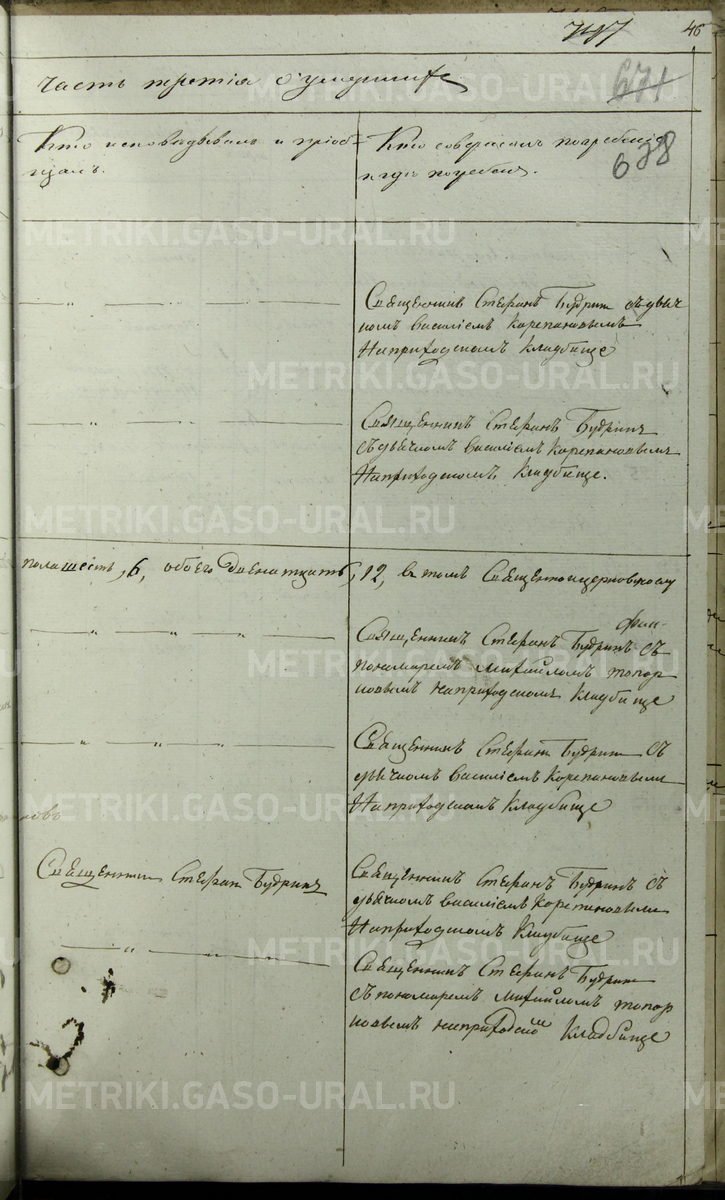 46
671
688
Часть третія о умершихъ
Кто исповѣдывалъ и пріоб-
щалъ.
Кто совершалъ погребеніе
и гдѣ погребен.
Священникъ Стефанъ Будрин съ дьяч
комъ Василіемъ Корепановымъ
На приходскомъ кладбище
Священникъ Стефанъ Будринъ
съ дьячкомъ Василіемъ Корепановымъ
На приходскомъ кладбище.
пола шесть, 6, обоего двенатцать, 12, в томъ Священноцерковному
Священникъ Стефанъ Будринъ съ
пономаремъ Михайломъ топор
ковымъ на приходскомъ кладбище
Священникъ Стефан Будрин съ
дьячкомъ Василіемъ Корепановымъ
На приходскомъ кладбище
Священник Стефан Будринъ
Священникъ Стефанъ Будринъ съ
дьячкомъ Василіемъ Корепановымъ
На приходскомъ кладбище
Священникъ Стефанъ Будрин
съ пономаремъ Михайломъ топор
ковымъ на приходском кладбище
METRIKI.GASO-URAL.RU